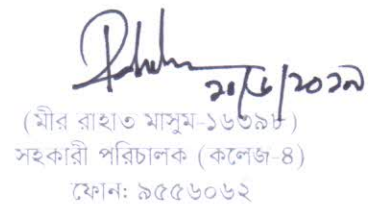 ২০/৬/২০১৯
(মীর রাহাত মাসুম-১৬৩৯৮)
সহকারী পরিচালক (কলেজ-৪)
ফোন: ৯৫৫৬০৬২